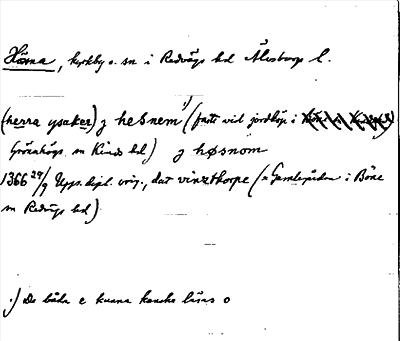 Hösna, kyrkby o. sn i Redvägs hd Älvsborgs l.
(herra ysaker) z hesnem 1) (fasti vid jordköp i
Grönahögs sn Kinds hd) z høsnom
1366 24/9 Upps. dipl. orig., dat vinzthorpe (= i Böne
sn Redvägs hd)
1) De båda e kunna kanske läsas o